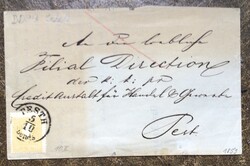 An die löbliche
Filial Direction
der k. k. pr
Creditanstalt für Handel & Gewerbe
Pest
PESTH
1859